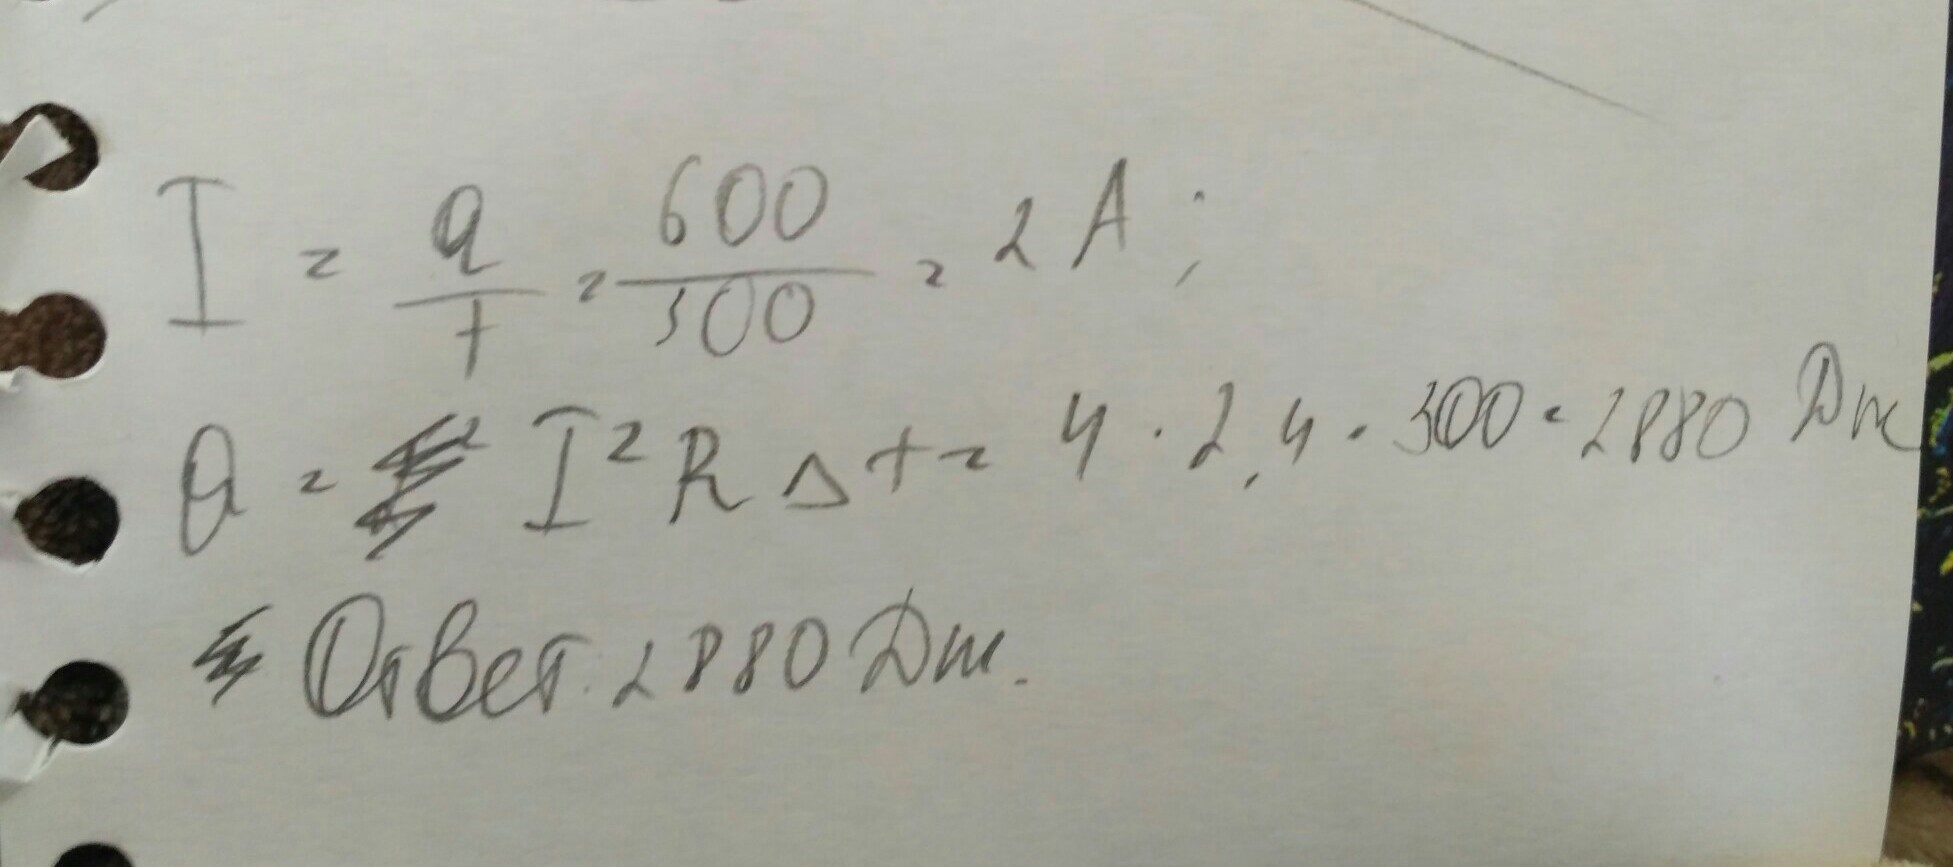 I = q/t = 600/300 = 2 А;
Q = I²RΔt = 4 · 2,4 · 300 = 2880 Дж
Ответ: 2880 Дж.